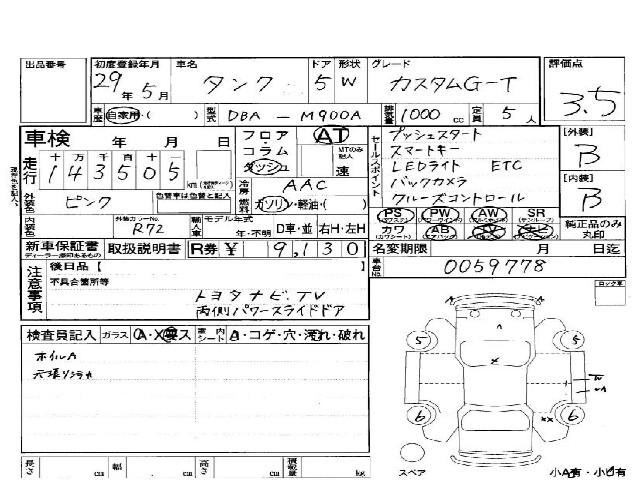 出品番号 初度登録年月 車名 ドア 形状 グレード 評価点
29年 5月 タンク 5 W カスタムG-T 3.5
車歴 自家用・( ) 型式 DBA - M900A 排気量 1000 cc 定員 5 人
車検 年 月 日 フロア・コラム・ダッシュ AT MTのみ記入 速
走行 十 万 千 百 十 一
143505 km
冷房 AAC
外装色 ピンク 色替車は元色 燃料 ガソリン・軽油・( )
内装色 外装カラーNo. R72 輸入車 モデル年式 年・不明 D車・並 右H・左H
新車保証書 取扱説明書 R券 ¥ 9,130
ディーラー提示印あるもの
セールスポイント
プッシュスタート
スマートキー
LEDライト ETC
バックカメラ
クルーズコントロール
[外装] B
[内装] B
PS PW AW SR
カワ AB
純正品のみ丸印
名変期限 月 日迄
車台No. 0059778
注意事項
後日品【 】
不具合箇所等
トヨタナビ・TV
両側パワースライドドア
ロック車
検査員記入 ガラス A・X・要ス 室内シート A・コゲ・穴・汚れ・破れ
ホイルA
5 5
6 6
X
W
A
XX
長さ cm 幅 cm 高さ cm 積載量 kg
スペア 小A有・小U有